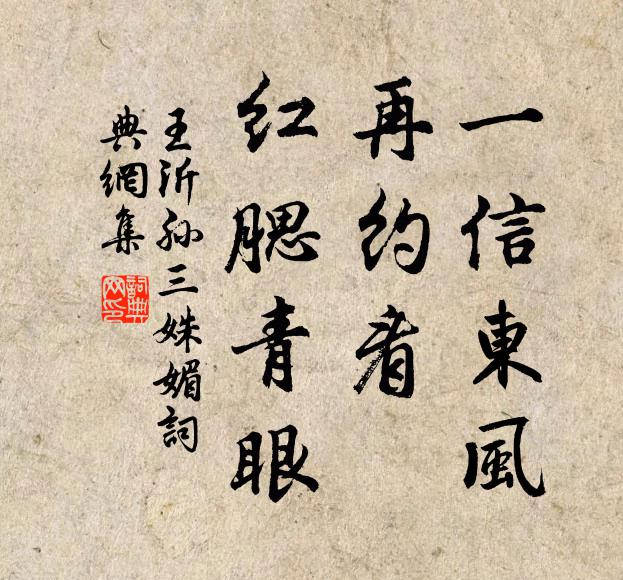 一信東風
再約看
紅腮青眼
王沂孫三姝媚詞
典網集
詞典
网印